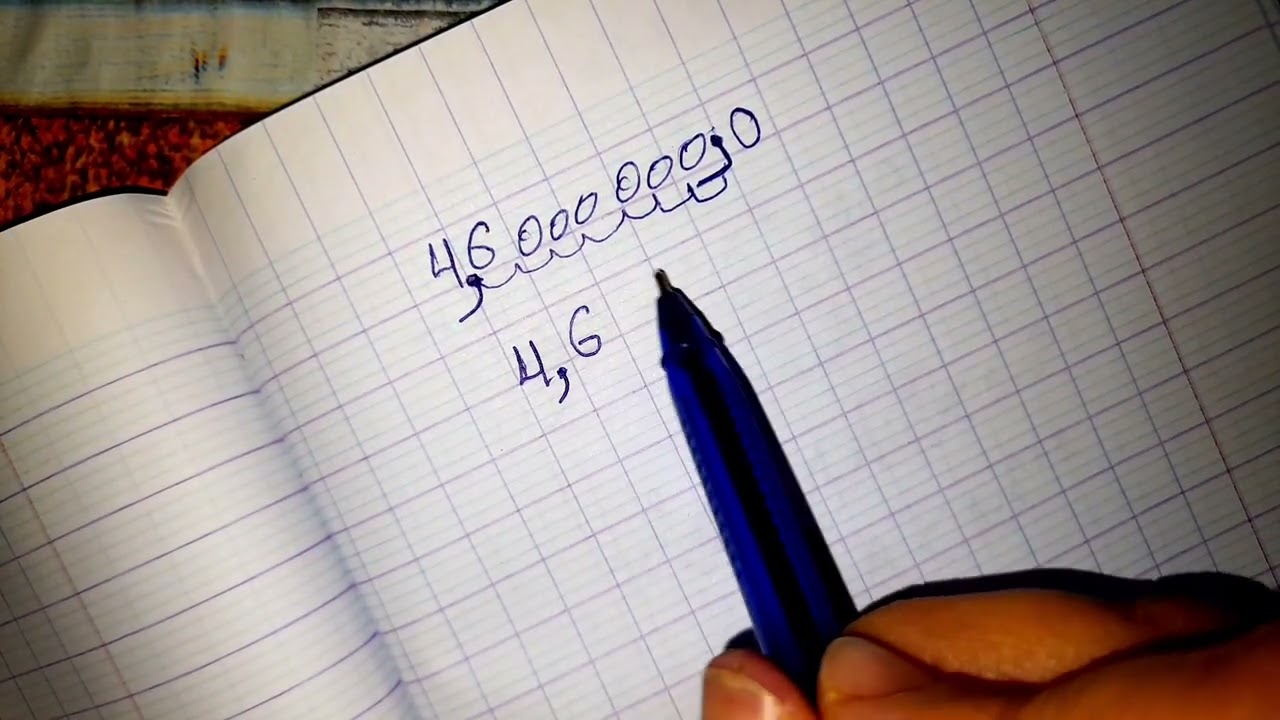 4,6000000,0
4,6